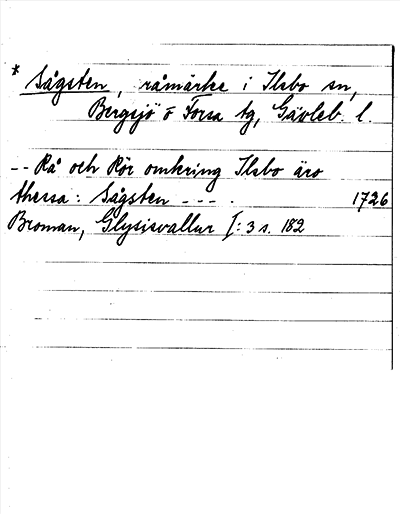 * Sågsten, råmärke i Ilsbo sn,
Bergsjö o Forsa tg, Gävleb. l.
-- Rå och Rör omkring Ilsbo äro
thessa: Sågsten - - - . 1726
Broman, Glysisvallur I: 3 s. 182